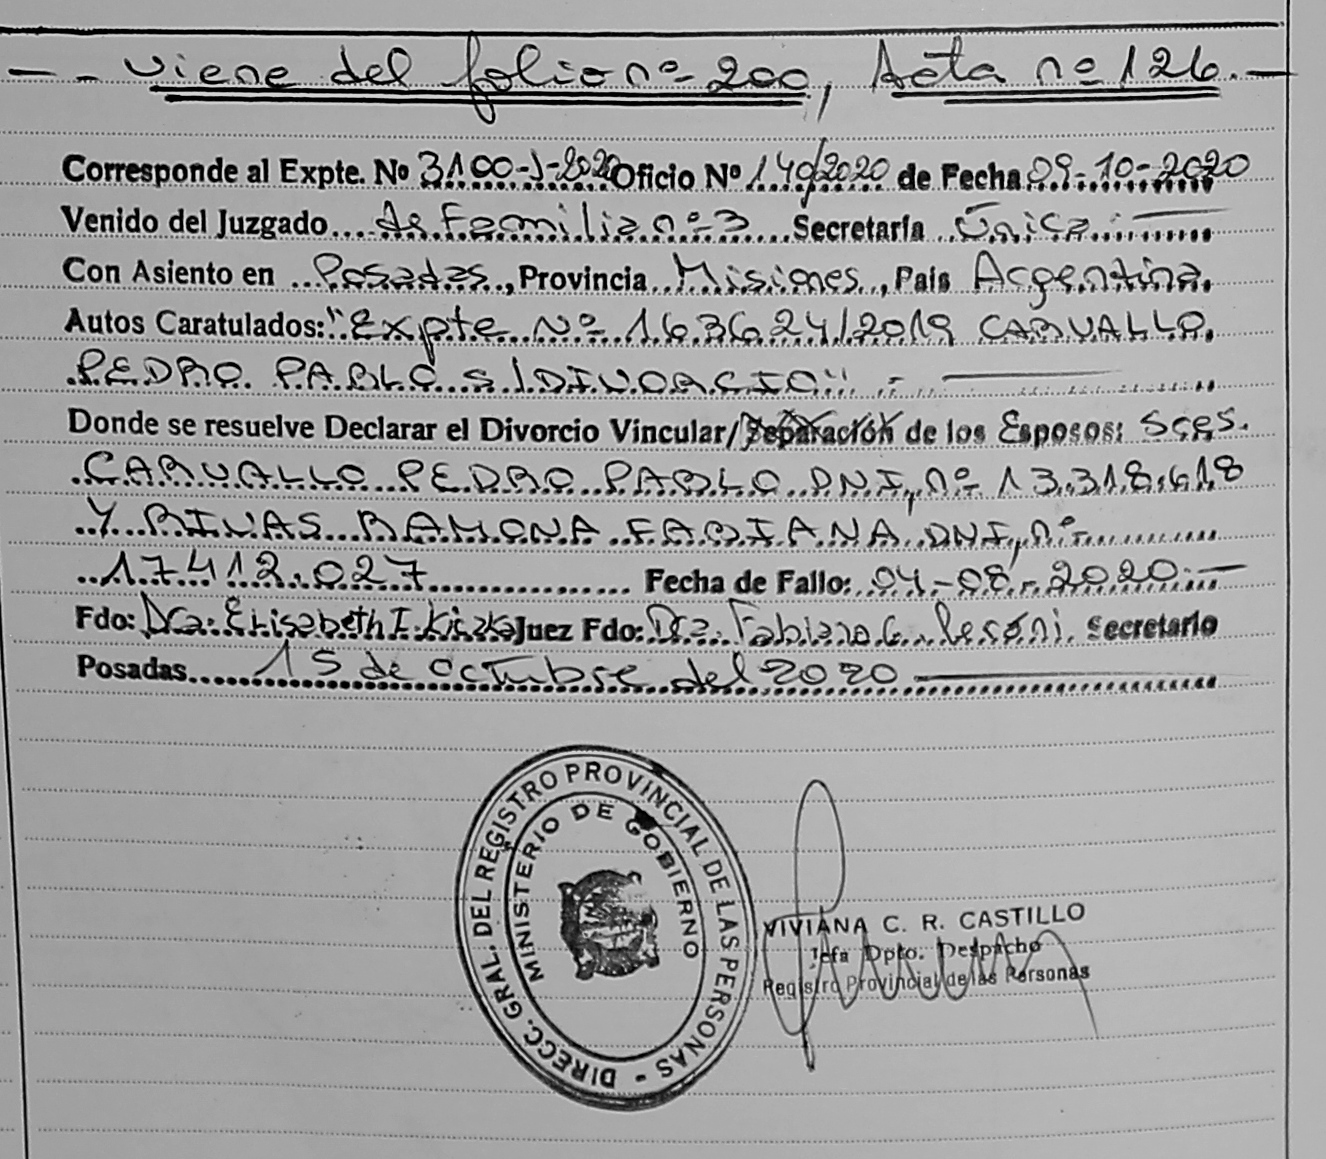 — - viene del folio nº 200, Acta nº 126.—
Corresponde al Expte. Nº 3100-J-2020 Oficio Nº 140/2020 de Fecha 09-10-2020
Venido del Juzgado de Familia nº 3 Secretaría Única.
Con Asiento en Posadas, Provincia Misiones, País Argentina.
Autos Caratulados: "Expte Nº 163624/2019 CARVALLO
PEDRO PABLO S/DIVORCIO". -
Donde se resuelve Declarar el Divorcio Vincular/Separación de los Esposos: Sres.
CARVALLO PEDRO PABLO DNI, nº 13.318.618
Y RIVAS RAMONA FABIANA DNI, nº
17.412.027 Fecha de Fallo: 04-08-2020.—
Fdo: Dra. Elisabeth I. Juez Fdo: Dra. Fabiana C. Secretario
Posadas 15 de octubre del 2020
DIRECC. GRAL. DEL REGISTRO PROVINCIAL DE LAS PERSONAS -
MINISTERIO DE GOBIERNO
VIVIANA C. R. CASTILLO
Jefa Dpto. Despacho
Registro Provincial de las Personas